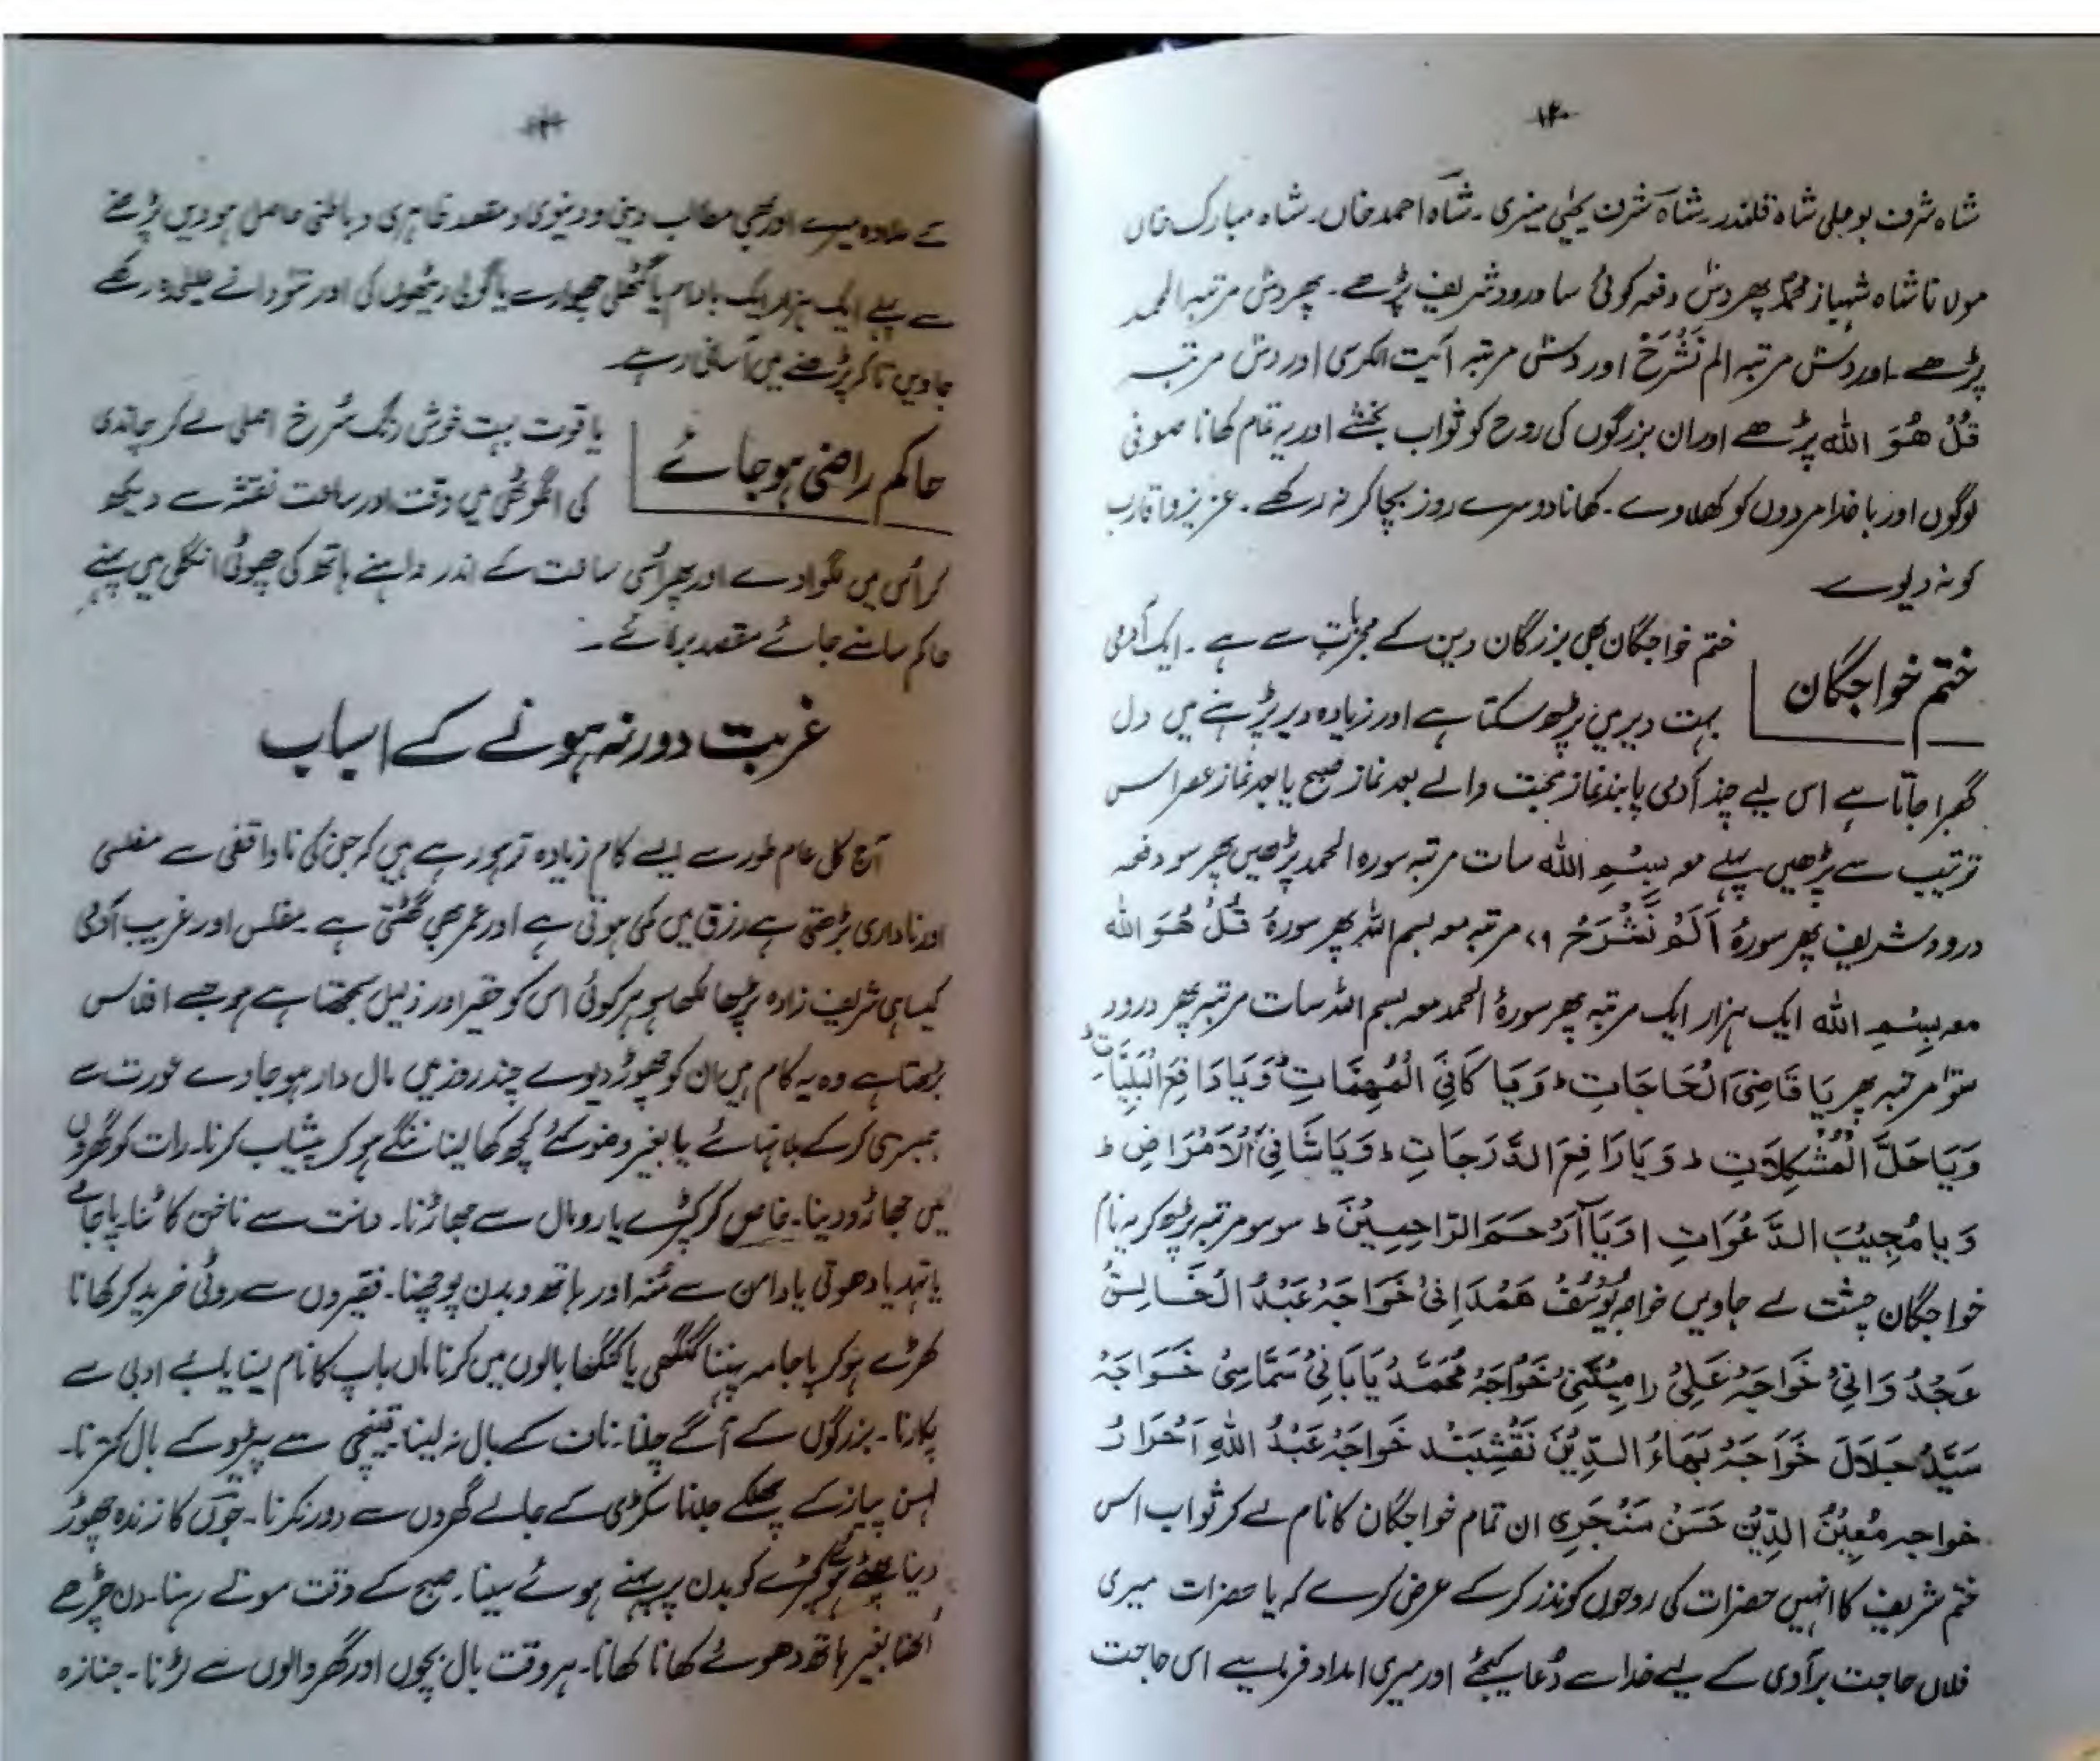 ۱۴۰
شاہ شرف بو علی شاہ قلندر۔ شاہ شرف یحییٰ منیری۔ شاہ احمد خاں۔ شاہ مبارک خاں
مولانا شاہ شہباز محمدؐ پھر دسؔ دفعہ کوئی سا درود شریف پڑھے۔ پھر دسؔ مرتبہ الحمد
پڑھے۔ اور دسؔ مرتبہ الم نَشْرَحْ اور دسؔ مرتبہ آیت الکرسی اور دسؔ مرتبہ
قُلْ هُوَ اللہ پڑھے اور ان بزرگوں کی روح کو ثواب بخشے اور یہ تمام کھانا صوفی
لوگوں اور باخدا مردوں کو کھلاوے۔ کھانا دوسرے روز بچا کر نہ رکھے۔ عزیز و اقارب
کو نہ دیوے
ختم خواجگان
ختم خواجگان بھی بزرگان دین کے مجربات سے ہے۔ ایک آدمی
بہت دیر میں پڑھ سکتا ہے اور زیادہ دیر پڑھنے میں دل
گھبرا جاتا ہے اس لیے چند آدمی پابند نماز محبت والے بعد نماز صبح یا بعد نماز عصر اس
ترتیب سے پڑھیں پہلے معہ بِسْمِ اللہ سات مرتبہ سورہ الحمد پڑھیں پھر سو دفعہ
درود شریف پھر سورۂ اَلَمْ نَشْرَحْ ۷۹ مرتبہ معہ بسم اللہ پھر سورۂ قُلْ هُوَ اللہ
معہ بِسْمِ اللہ ایک ہزار ایک مرتبہ پھر سورۂ الحمد معہ بسم اللہ سات مرتبہ پھر درود
سَوْ مرتبہ پھر یَا قَاضِیَ الْحَاجَاتِ ط وَیَا کَافِیَ الْمُهِمَّاتِ ط وَیَا دَافِعَ الْبَلِیَّاتِ ط
وَیَا حَلَّ الْمُشْکِلَاتِ ط وَیَا رَافِعَ الدَّرَجَاتِ ط وَیَا شَافِیَ الْاَمْرَاضِ ط
وَیَا مُجِیْبَ الدَّعْوَاتِ ا وَیَا اَرْحَمَ الرَّاحِمِیْنَ ط سو سو مرتبہ پڑھ کر یہ نام
خواجگان چشت لے جاویں خواجہ یُوْسُفْ هَمْدَانِیْ خَوَاجَہْ عَبْدُ الْخَالِقْ
عَجْدُ وَانِیْ خَوَاجَہْ عَلِیْ رامِیْتَنِیْ خَوَاجَہْ مُحَمَّدْ بَابَائِیْ سَمَّاسِیْ خَوَاجَہْ
سَیِّدْ جَلَالَ خَوَاجَہْ بَهَاءُ الدِّیْنَ نَقْشِبَنْد خَوَاجَہْ عَبْدُ اللہِ اَحْرَارْ
خواجہ مُعِیْنُ الدِّیْنْ حَسَنْ سَنْجَرِی ان تمام خواجگان کا نام لے کر ثواب اس
ختم شریف کا انہیں حضرات کی روحوں کو نذر کر کے عرض کرے کہ یا حضرات میری
فلاں حاجت برآوی کے لیے خدا سے دُعا کیجئے اور میری امداد فرمایے اس حاجت
کے علاوہ میرے اور بھی مطالب دینی و دنیوی و مقصد ظاہری و باطنی حاصل ہو دیں پڑھنے
سے پہلے ایک ہزار ایک بادام یا گٹھلی چھوارے یا گولی ریٹھوں کی اور سَو دانے علیٰحدہ رکھے
جاویں تاکہ پڑھنے میں آسانی رہے۔
حاکم راضی ہو جائے
یاقوت بہت خوش رنگ سُرخ اصلی لے کر چاندی
کی انگوٹھی میں وقت اور ساعت نقشہ سے دیکھ
کر اُس میں لگوا دے اور پھر اُسی ساعت کے اندر داہنے ہاتھ کی چھوٹی انگلی میں پہنے
حاکم سامنے جائے مقصد بر آئے۔
غربت دور نہ ہونے کے اسباب
آج کل عام طور سے ایسے کام زیادہ تر ہو رہے ہیں کہ جن کی ناواقفی سے مفلسی
اور ناداری بڑھتی ہے رزق میں کمی ہوتی ہے اور عمر بھی گھٹتی ہے۔ مفلس اور غریب آدمی
کیسا ہی شریف زادہ پڑھا لکھا ہو ہر کوئی اس کو حقیر اور ذلیل سمجھتا ہے جو جسے افلاس
بڑھتا ہے وہ یہ کام ہیں ان کو چھوڑ دیوے چند روز میں مال دار ہو جاوے عورت سے
ہمبستری کر کے بلا نہائے یا بغیر وضو کئے کچھ کھا لینا ننگے ہو کر پیشاب کرنا۔ رات کو گھروں
میں جھاڑو دینا۔ خاص کر کپڑے یا رومال سے جھاڑنا۔ دانت سے ناخن کاٹنا۔ پاجامے
یا تہمد یا دھوتی یا دامن سے مُنہ اور ہاتھ و بدن پونچھنا۔ فقیروں سے روٹی خرید کر کھانا
کھڑے ہو کر پاجامہ پہننا کنگھی یا کنگھا بالوں میں کرنا ماں باپ کا نام لینا یا بے ادبی سے
پکارنا۔ بزرگوں کے آگے چلنا۔ ناف کے بال نہ لینا۔ قینچی سے پیڑو کے بال کترنا۔
لہسن پیاز کے چھلکے جلانا مکڑی کے جالے گھروں سے دور نہ کرنا۔ جوں کا زندہ چھوڑ
دینا پھٹے ہوئے کپڑے کو بدن پر پہنے ہوئے سینا۔ صبح کے وقت سوتے رہنا۔ دن چڑھے
اٹھنا بغیر ہاتھ دھوئے کھانا کھانا۔ ہر وقت بال بچوں اور گھر والوں سے لڑنا۔ جنازہ